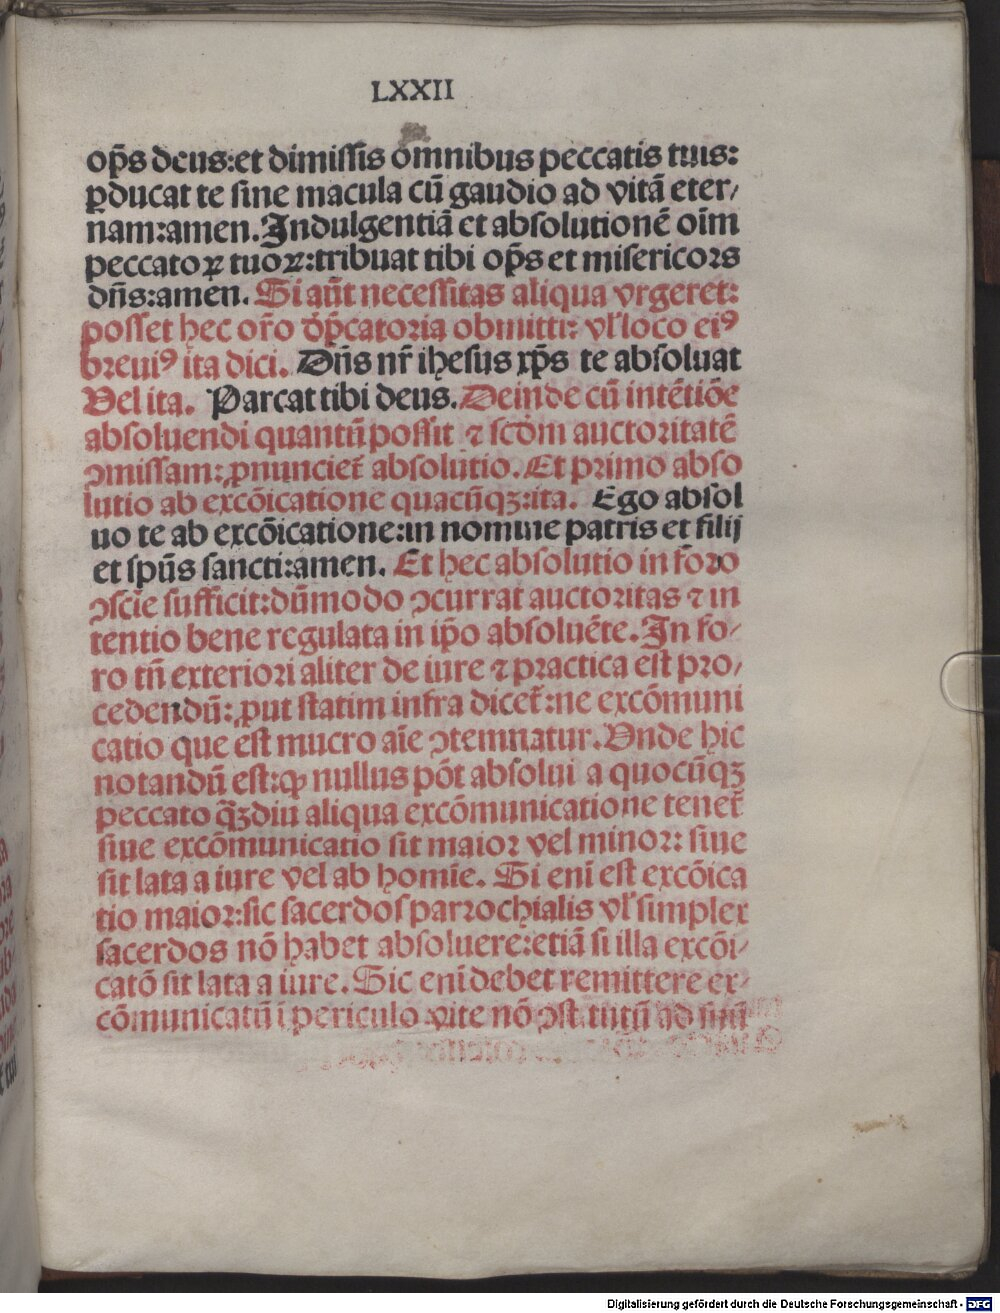 LXXII
op̄s deus:et dimissis omnibus peccatis tuis:
ꝑducat te sine macula cū gaudio ad vitā eter/
nam:amen.Indulgentiā et absolutionē oīm
peccatoꝝ tuoꝝ:tribuat tibi op̄s et misericors
dn̄s:amen. Si aūt necessitas aliqua vrgeret:
posset hec oro dp̄catoria obmitti: vl' loco eiꝰ
breuiꝰ ita dici. Dn̄s nr̄ ihesus xp̄s te absoluat
Vel ita. Parcat tibi deus. Deinde cū intētiōe
absoluendi quantū possit ⁊ scd̄m auctoritatē
ꝯmissam: ꝓnunciet᷑ absolutio. Et primo abso
lutio ab excōicatione quacūqꝫ:ita. Ego absol
uo te ab excōicatione:in nomine patris et filij
et spūs sancti:amen. Et hec absolutio in foro
ꝯscie sufficit:dūmodo ꝯcurrat auctoritas ⁊ in
tentio bene regulata in ip̄o absoluēte. In fo/
ro tn̄ exteriori aliter de iure ⁊ practica est pro/
cedendū: ꝓut statim infra dicet᷑:ne excōmuni
catio que est mucro aīe ꝯtemnatur. Vnde hic
notandū est:ꝙ nullus pōt absolui a quocūqꝫ
peccato q̄ꝫdiu aliqua excōmunicatione tenet᷑
siue excōmunicatio sit maior vel minor: siue
sit lata a iure vel ab homīe. Si enī est excōica
tio maior:sic sacerdos parrochialis vl' simplex
sacerdos nō habet absoluere:etiā si illa excōi/
catō sit lata a iure. Sic enī debet remittere ex/
cōmunicatū ī periculo vite nō ꝯst. tutū ad suū
Digitalisierung gefördert durch die Deutsche Forschungsgemeinschaft - DFG